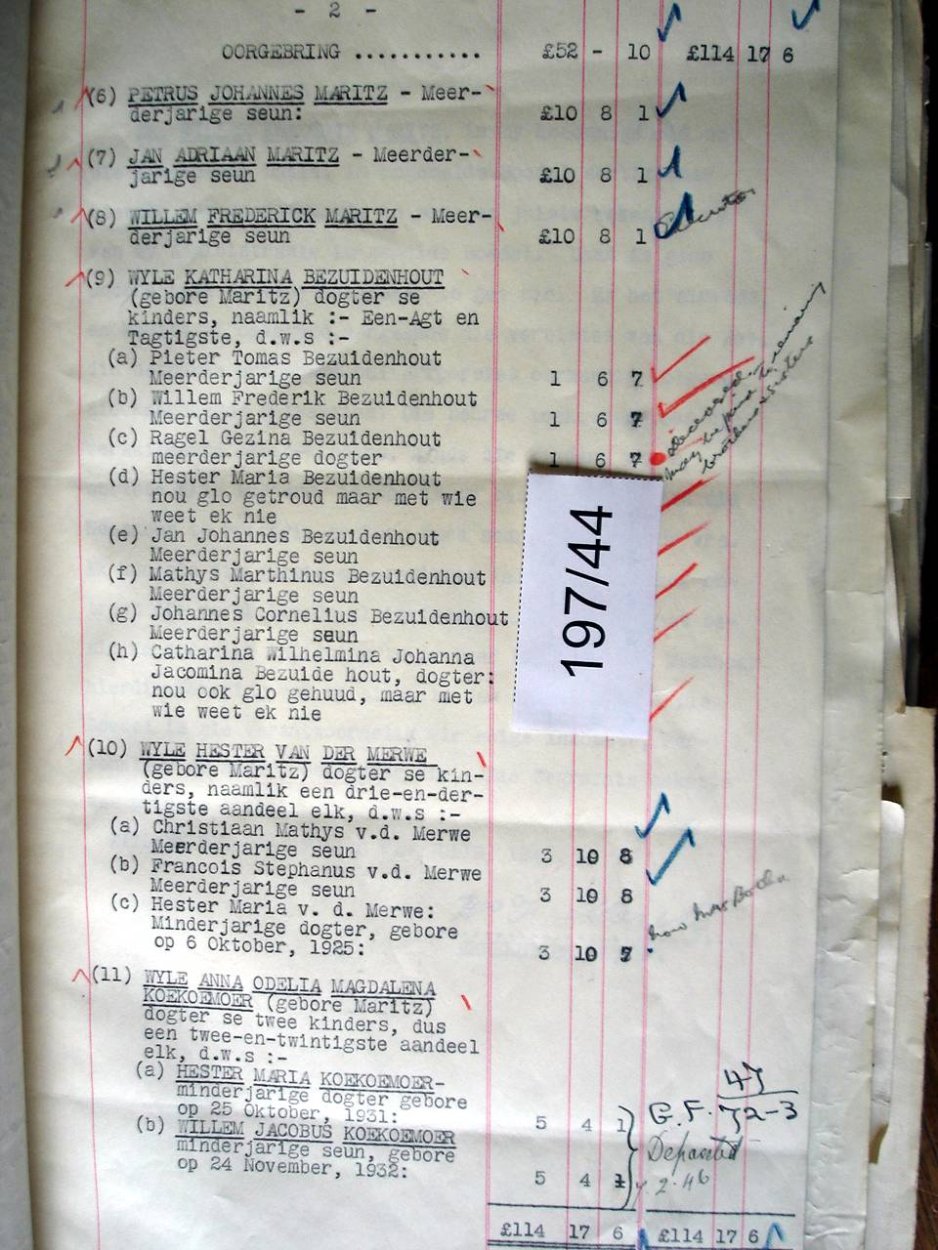 - 2 -
OORGEBRING ........... £52 - 10 £114 17 6
(6) PETRUS JOHANNES MARITZ - Meer-
derjarige seun: £10 8 1
(7) JAN ADRIAAN MARITZ - Meerder-
jarige seun £10 8 1
(8) WILLEM FREDERICK MARITZ - Meer-
derjarige seun £10 8 1
(9) WYLE KATHARINA BEZUIDENHOUT
(gebore Maritz) dogter se
kinders, naamlik :- Een-Agt en
Tagtigste, d.w.s :-
(a) Pieter Tomas Bezuidenhout
Meerderjarige seun 1 6 7
(b) Willem Frederik Bezuidenhout
Meerderjarige seun 1 6 7
(c) Ragel Gezina Bezuidenhout
meerderjarige dogter 1 6 7
deceased, remaining
may be paid to
brothers & sisters
(d) Hester Maria Bezuidenhout
nou glo getroud maar met wie
weet ek nie
(e) Jan Johannes Bezuidenhout
Meerderjarige seun
(f) Mathys Marthinus Bezuidenhout
Meerderjarige seun
(g) Johannes Cornelius Bezuidenhout
Meerderjarige seun
(h) Catharina Wilhelmina Johanna
Jacomina Bezuide hout, dogter:
nou ook glo gehuud, maar met
wie weet ek nie
197/44
(10) WYLE HESTER VAN DER MERWE
(gebore Maritz) dogter se kin-
ders, naamlik een drie-en-der-
tigste aandeel elk, d.w.s :-
(a) Christiaan Mathys v.d. Merwe
Meerderjarige seun 3 10 8
(b) Francois Stephanus v.d. Merwe
Meerderjarige seun 3 10 8
(c) Hester Maria v. d. Merwe:
Minderjarige dogter, gebore
op 6 Oktober, 1925: 3 10 7 now Mrs Botha
(11) WYLE ANNA ODELIA MAGDALENA
KOEKOEMOER (gebore Maritz)
dogter se twee kinders, dus
een twee-en-twintigste aandeel
elk, d.w.s :-
(a) HESTER MARIA KOEKOEMOER-
minderjarige dogter gebore
op 25 Oktober, 1931: 5 4 1
(b) WILLEM JACOBUS KOEKOEMOER
minderjarige seun, gebore
op 24 November, 1932: 5 4 1
47
G.F. 72-3
Deposited
.2.46
£114 17 6 £114 17 6